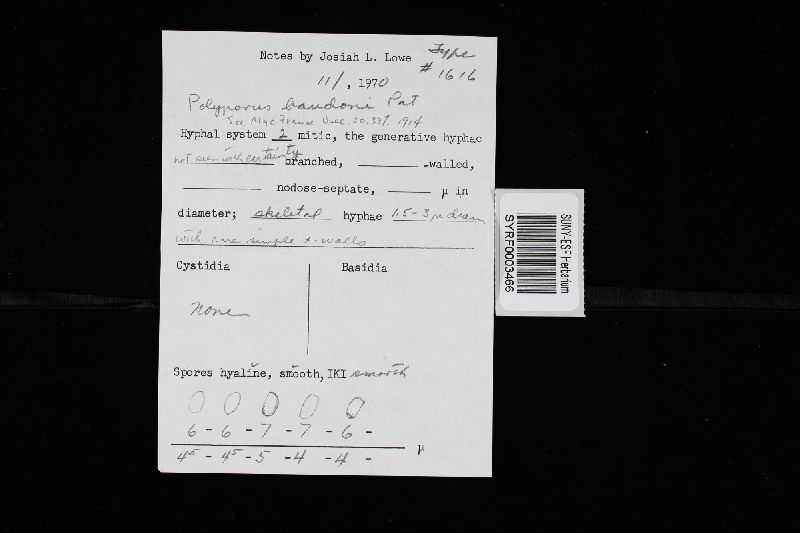 Notes by Josiah L. Lowe Type
# 1616
11/, 1970
Polyporus baudoni Pat
Soc Myc France Bull. 30:337. 1914
Hyphal system 2 mitic, the generative hyphae
not seen with certainty branched, -walled,
nodose-septate, µ in
diameter; skeletal hyphae 1.5-3 µ diam
with rare simple x-walls
Cystidia Basidia
none
Spores hyaline, smooth, IKI smooth
6 - 6 - 7 - 7 - 6 -
4⁵ - 4⁵ - 5 - 4 - 4 - µ
SUNY-ESF Herbarium
SYRF0003466